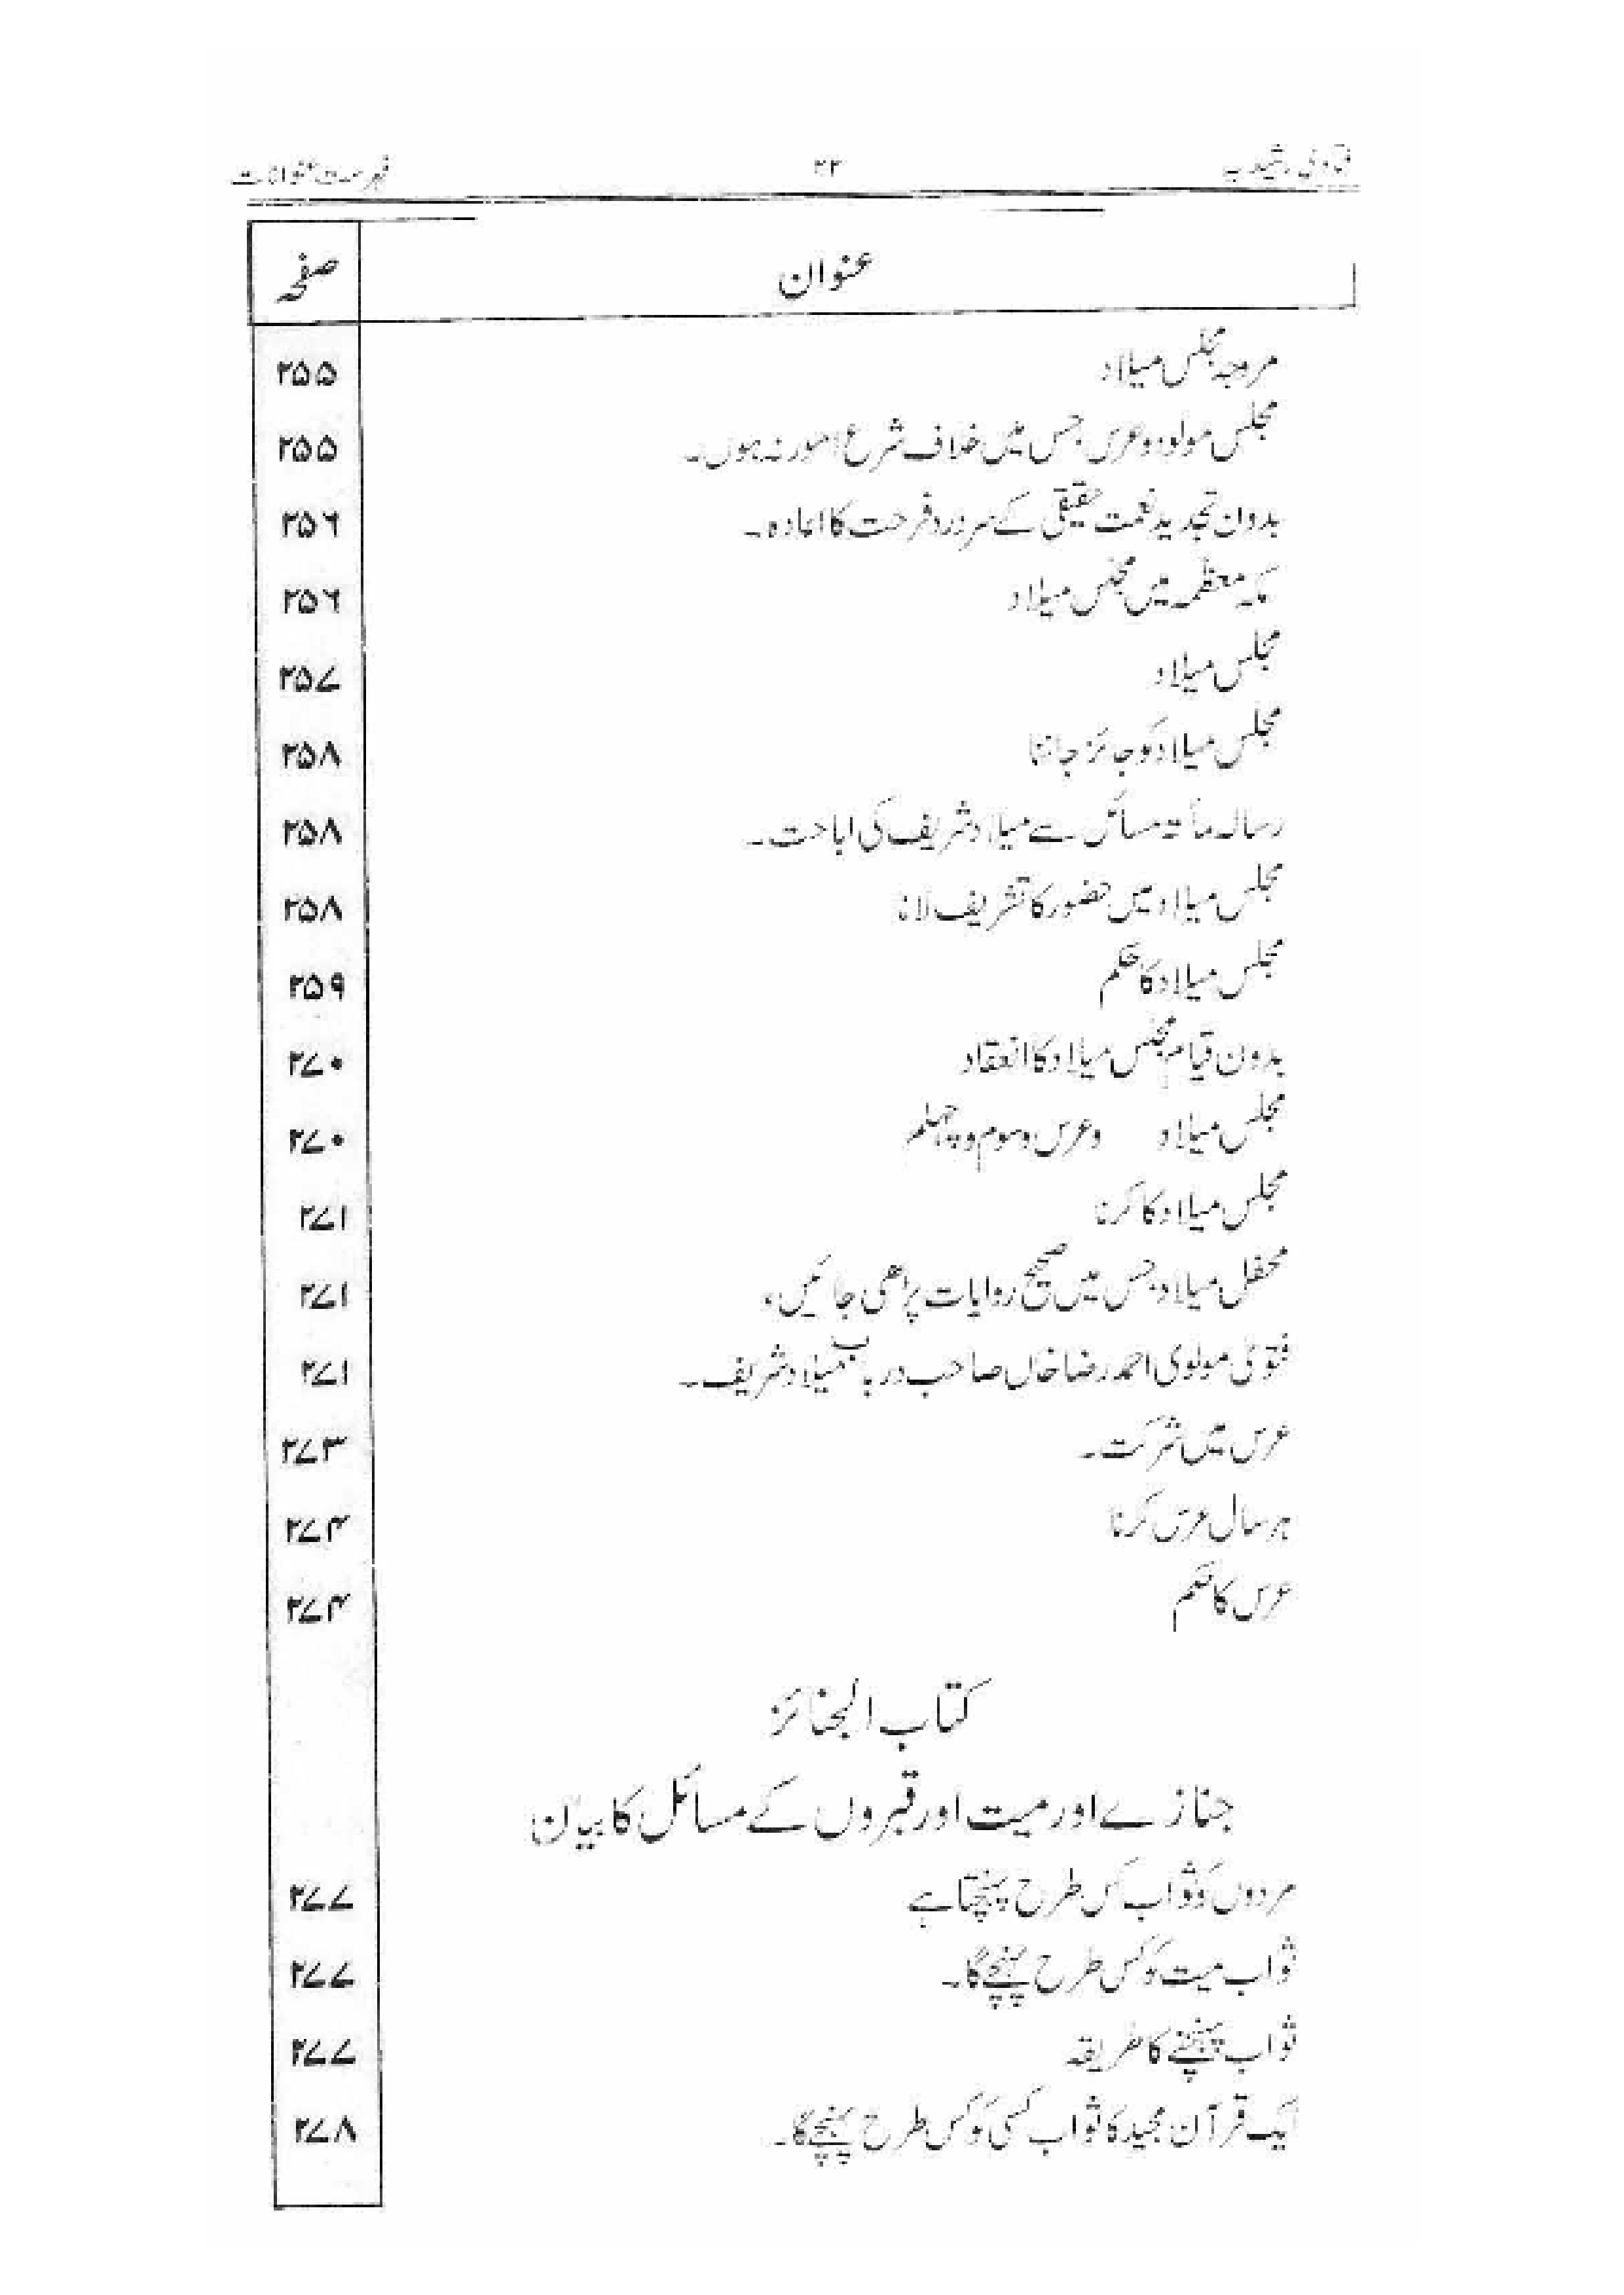 فتاویٰ رشیدیہ ۲۲ فہرست عنوانات
عنوان صفحہ
مروجہ مجلس میلاد ۲۵۵
مجلس مولود و عرس جس میں خلاف شرع امور نہ ہوں۔ ۲۵۵
بدون تجدید نعمت حقیقی کے سرور و فرحت کا اعادہ۔ ۲۵۶
مکہ معظمہ میں مجلس میلاد ۲۵۶
مجلس میلاد ۲۵۷
مجلس میلاد کو جائز جاننا ۲۵۸
رسالہ مأتہ مسائل سے میلاد شریف کی اباحت۔ ۲۵۸
مجلس میلاد میں حضور کا تشریف لانا ۲۵۸
مجلس میلاد کا حکم ۲۵۹
بدون قیام مجلس میلاد کا انعقاد ۲۷۰
مجلس میلاد و عرس و سوم و چہلم ۲۷۰
مجلس میلاد کا کرنا ۲۷۱
محفل میلاد جس میں صحیح روایات پڑھی جائیں، ۲۷۱
فتویٰ مولوی احمد رضا خاں صاحب در باب میلاد شریف۔ ۲۷۱
عرس میں شرکت۔ ۲۷۳
ہر سال عرس کرنا ۲۷۴
عرس کا حکم ۲۷۴
کتاب الجنائز
جنازے اور میت اور قبروں کے مسائل کا بیان
مردوں کو ثواب کس طرح پہنچتا ہے ۲۷۷
ثواب میت کو کس طرح پہنچے گا۔ ۲۷۷
ثواب پہنچنے کا طریقہ ۲۷۷
ایک قرآن مجید کا ثواب کسی کو کس طرح پہنچے گا۔ ۲۷۸